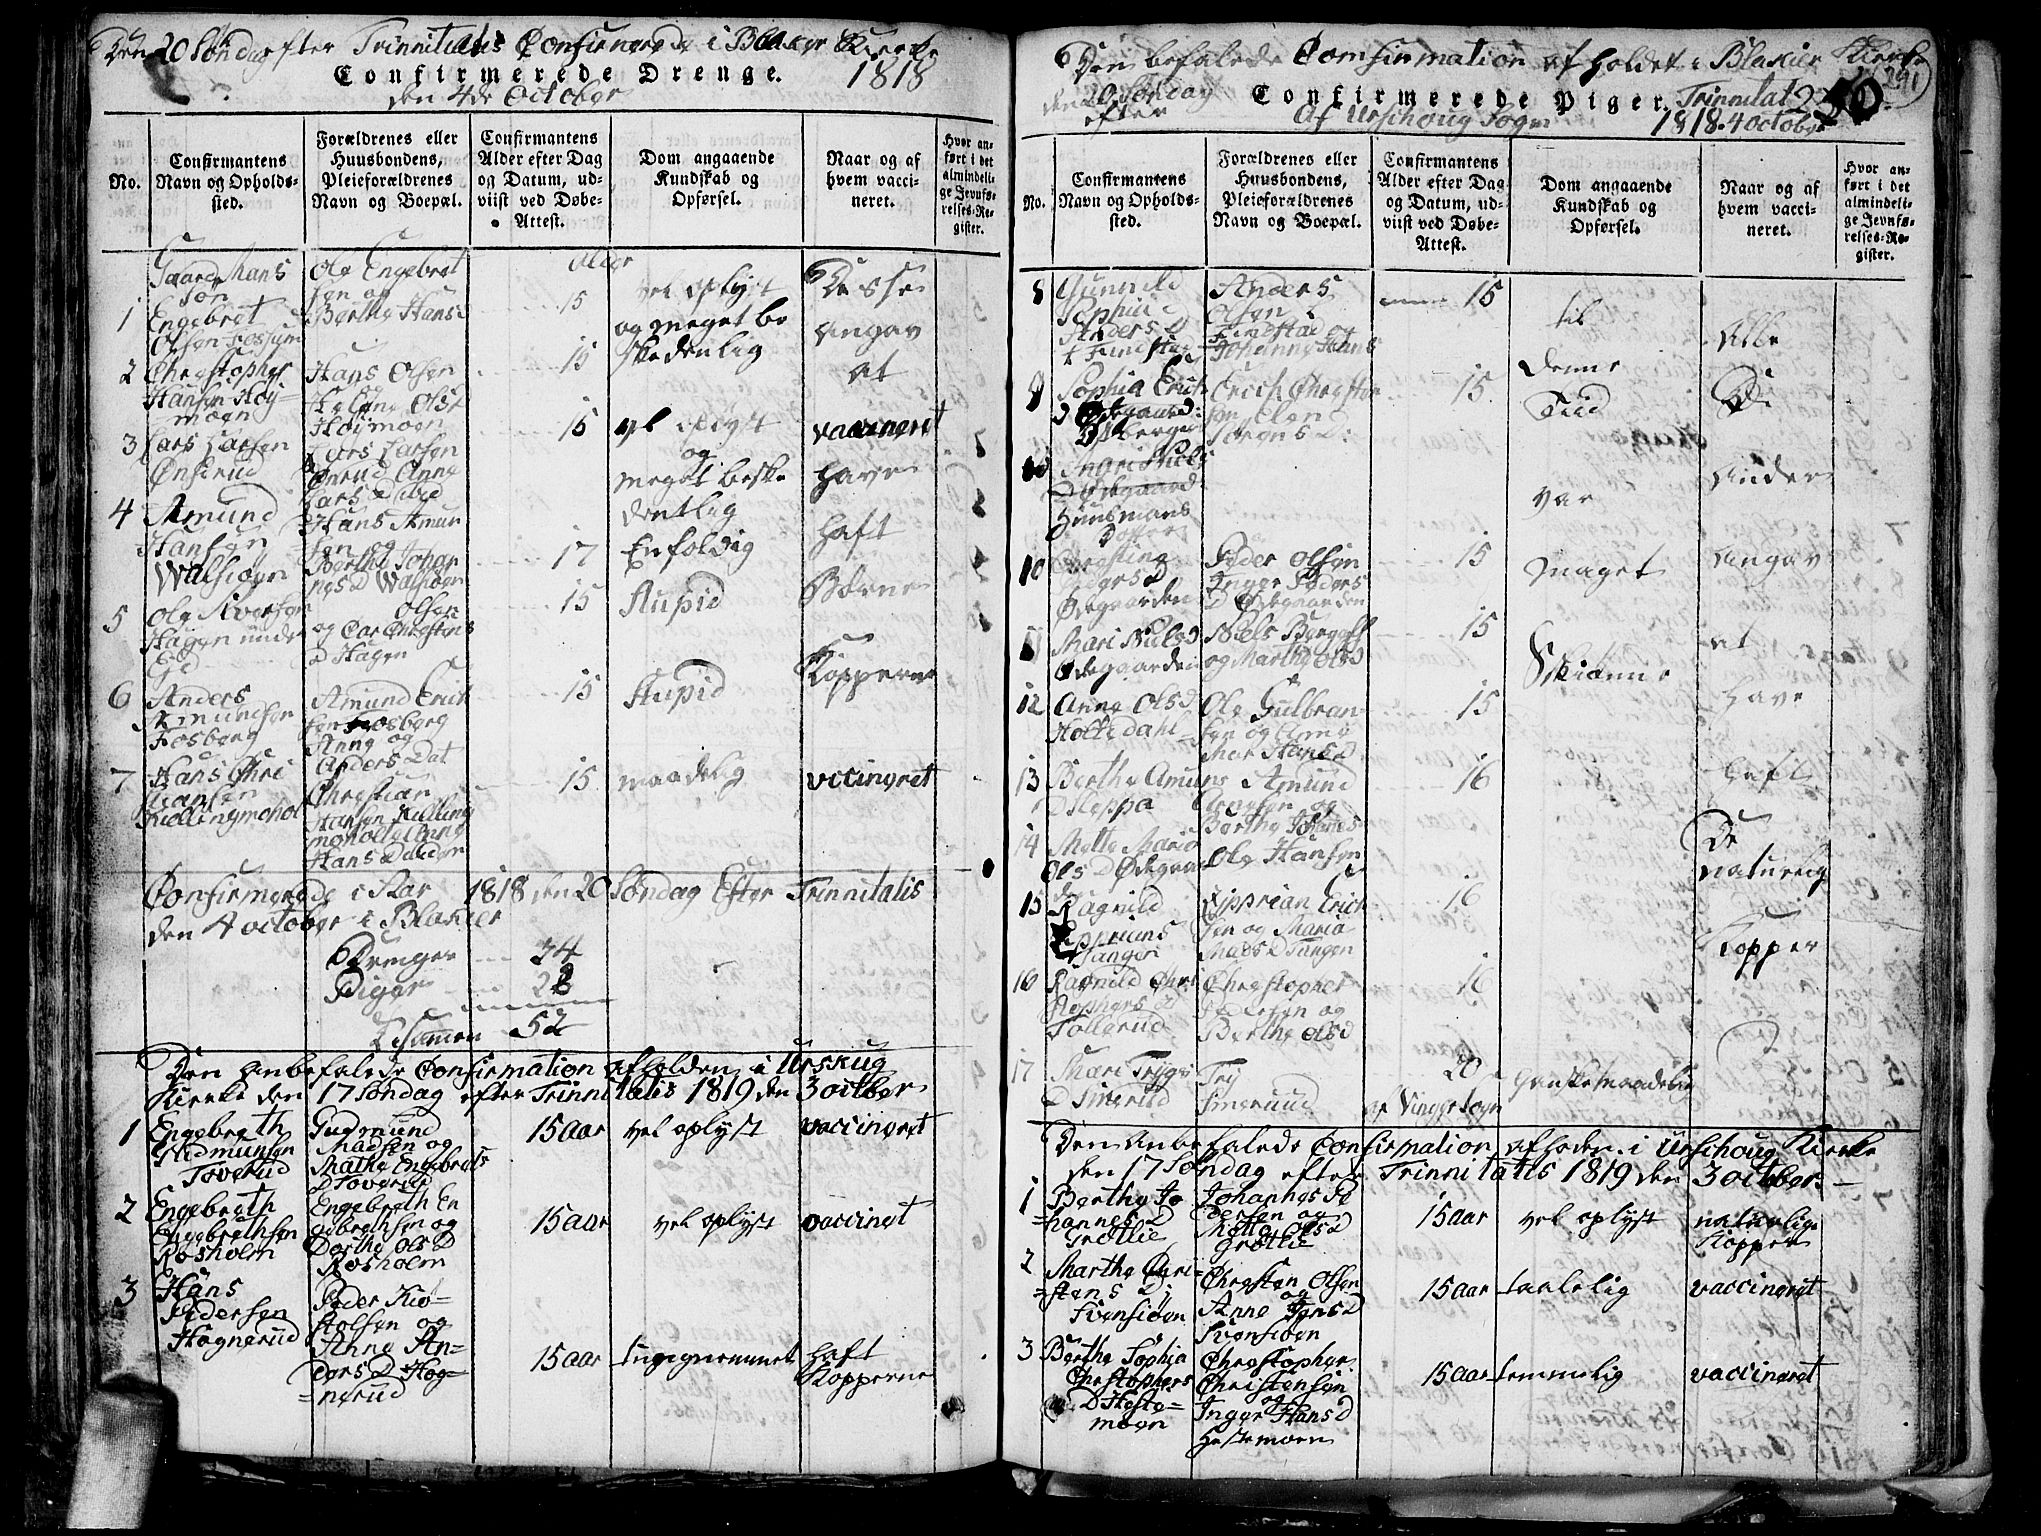 Den 20 Søndag efter Trinnitatis Confirmerede i Blaker Kierke
Confirmerede Drenge.
den 4de October 1818
No.
Confirmantens
Navn og Opholds-
sted.
Forældrenes eller
Huusbondens,
Pleieforældrenes
Navn og Boepæl.
Confirmantens
Alder efter Dag
og Datum, ud-
viist ved Døbe-
Attest.
Dom angaaende
Kundskab og
Opførsel.
Naar og af
hvem vacci-
neret.
Hvor an-
ført i det
almindeli-
ge Jevnfø-
relses-Re-
gister.
Gaardmans
søn
1 Engebret
Olsen Fossum
Ole Engebret
sen og
Berthe Hans D
15
vel oplyst
og meget be
skedenlig
Disse
angav
at
2 Christopher
Hansen Høy-
moen
Hans Olsen
Helene Ols D
Høymoen
15
3 Lars Larsen
Ønserud
Lars Larsen
Ønrud Anne
Lars D
15
vel oplyst
og
meget beske
dentlig
vaccineret
have
4 Amund
Hansen
Walsiøen
Hans Amun
sen og
Berthe Johan
nes D Walsiøen
17
Enfoldig
haft
5 Ole Iversen
Hagen under
Olsen
og Christens
D Hagen
15
Stupid
Børne
6 Anders
Amundsen
Fosberg
Amund Erick
sen Fosberg
Anne og
Anders Dat
15
Stupid
Kopperne
7 Hans Chri
stiansen
Killingmohol
Christian
Hansen Killing
moholt Anne
Hans D
15
maadelig
vccineret
Confirmerede i Aar 1818 den 20 Søndag Efter Trinnitatis
den 4 october i Blakier
Drenger 24
Piger 28
Tilsamen 52
Den Anbefalede Confirmation afholden i Urskug
Kierke den 17 Søndag efter Trinnitatis 1819 den 3 octber
1 Engebreth
Gudmunsen
Toverud
Gudmund
Madsen og
Mathe Engebrets
D Toverud
15 aar
vel oplyst
vaccineret
2 Engebreth
Engebrethsen
Rosholm
Engebreth En
gebrethsen og
Dorthe Ols D
Rosholm
15 aar
vel oplyst
vaccineret
3 Hans
Pedersen
Hognerud
Peder Kio-
stolsen og
Anne An-
ders D Hog-
=nerud
15 aar
haft
Kopperne
Den befalede Comfirmation af holdet i Blakier Kierke
den 20 Søndag
efter
Confirmerede Piger.
Trinnitat
Af Urschoug Sogn
1818. 4 october
50
291
No.
Confirmantens
Navn og Opholds-
sted.
Forældrenes eller
Huusbondens,
Pleieforældrenes
Navn og Boepæl.
Confirmantens
Alder efter Dag
og Datum, ud-
viist ved Døbe-
Attest.
Dom angaaende
Kundskab og
Opførsel.
Naar og af
hvem vacci-
neret.
Hvor an-
ført i det
almindeli-
ge Jevnfø-
relses-Re-
gister.
8 Gunnild
Sophie
Anders D
Findstad
Anders
Olsen
Findstad og
Johanne Hans
15
til
Alle
9 Sophia Erich
D Ødegaard
Erich Christof
sen Elen
Jorgens D
15
denne
Tiid
Di
Ingri Niels
D Ødegaard
Huusmans
Dotter
var
Ander
10 Christine
Peders D
Ødegaarden
Peder Olsen
Inger Peders
D Ødegaarden
15
maget
Angav
11 Mari Niels D
Ødegaarden
Niels
og Marthe Ols D
15
Skiønne
at
12 Anne Ols D
Holtedahl
Ole Gulbran
sen og
Mar Hans D
15
have
13 Berthe Amuns
D Kleppa
Amund
Arnesen og
Berthe Johanes
16
haft
14 Mette Maria
Ols D Ødegaar
den
Ole Hansen
De
naturlig
15 Ragnild
Cipprians
Tangen
Cipprian Erich
sen og Maria
Mads D Tangen
16
Kopper
16 Ragnild Chri
stophers D
Tollerud
Christopher
Pedersen og
Berthe Ols D
16
17 Mari Trygs
D Smerud
Try
Smeruud
20
af Vinger Sogn
Ganske maadelig
Den Anbefalede Confirmation afholden i Urschoug Kierke
den 17 Søndag efter Trinnitatis 1819 den 3 octber. —
1 Berthe Jo
=hannes D
Grøtlie
Johannes Pe
dersen og
Mette Ols D
Grøtlie
15 aar
vel oplyst
naturlige
Kopper
2 Marthe Chri=
=stens D
Svensiøen
Christen Olsen
og
Anne Jens D
Svensiøen
15 aar
taalelig
vaccineret
3 Berthe Sophia
Christophers
D Heste=
moen
Christopher
Christensen
og
Inger Hans D
Hestemoen
15 aar
temmelig
vaccineret